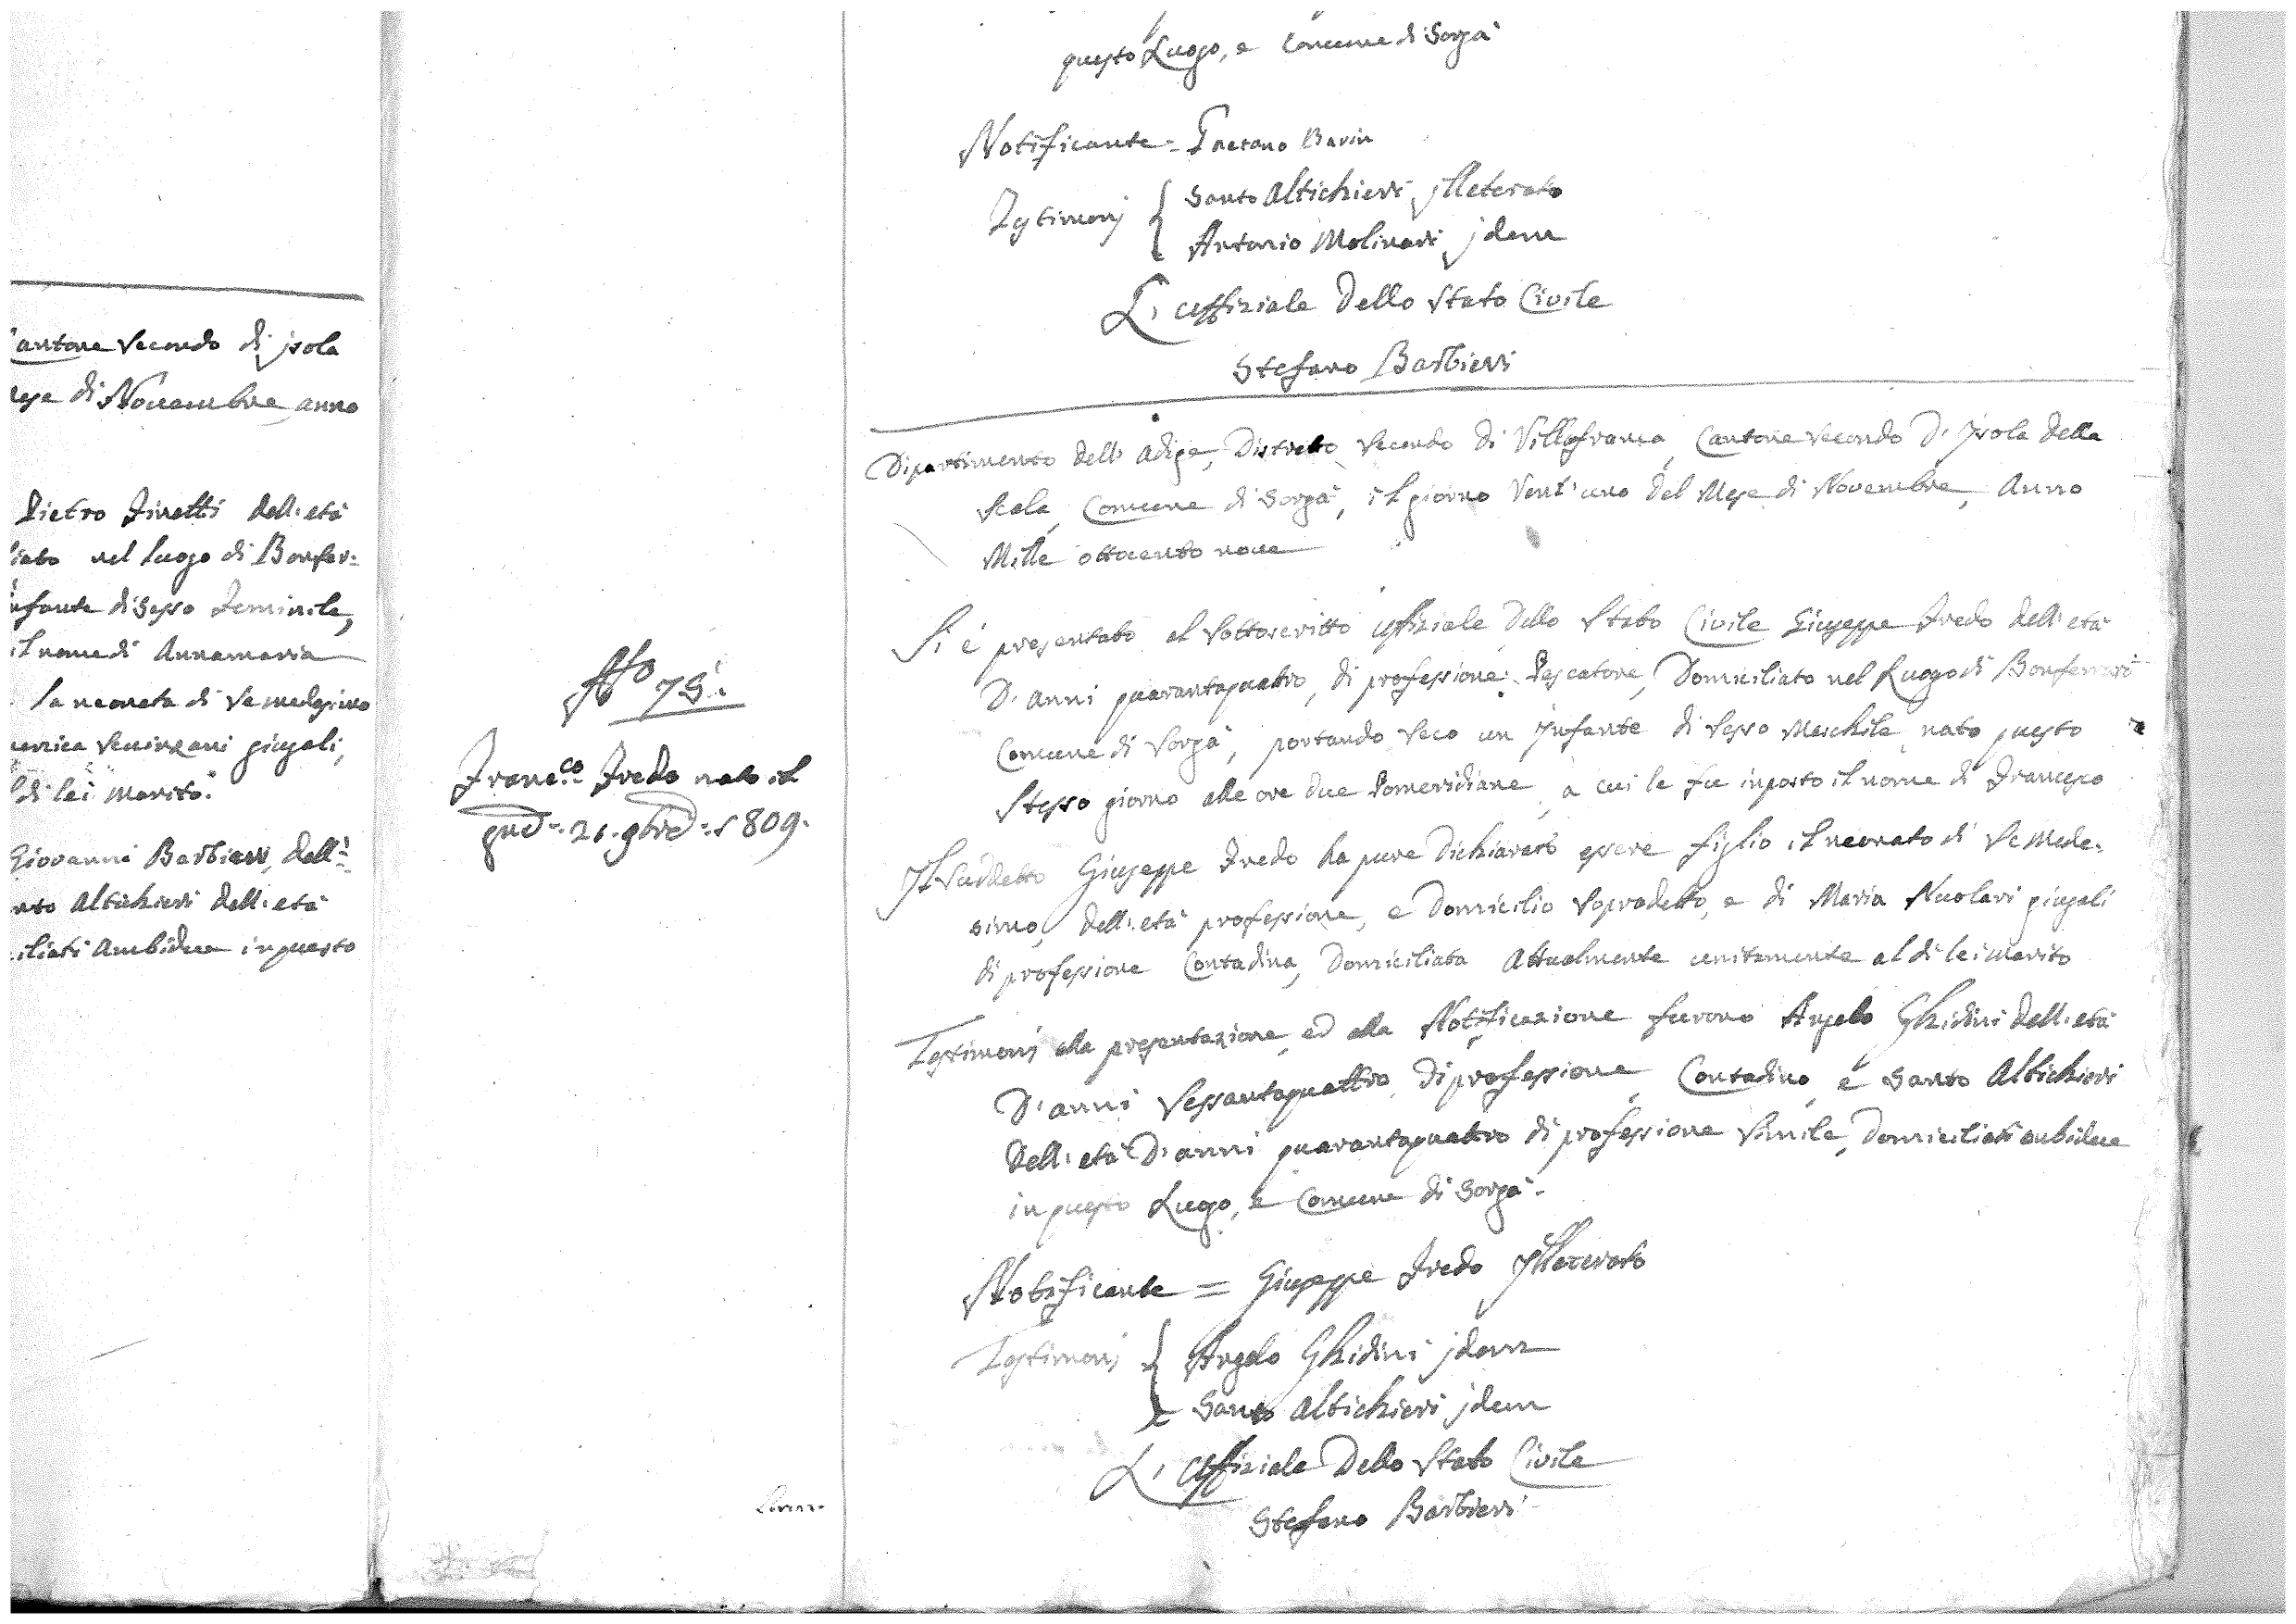 antone Secondo di jsola
di Novembre anno
Pietro Finetti dell'età
nel luogo di Bonfer=
di Sesso Feminile,
il nome di Annamaria
la neonata di se medesimo
giugali,
di lei marito.
Giovanni Barbieri, dell'
Altichieri dell'età
Ambidue in questo
No 75.
Franc.co Fredo nato il
21. 9bre 1809.
questo Luogo, e Comune di Sorgà
Notificante = Gaetano Bavin
Testimonj { Santo Altichieri jlleterato
Antonio Molinari jdem
L'uffiziale Dello Stato Civile
Stefano Barbieri
Dipartimento dell'Adige, Distretto Secondo di Villafranca, Cantone Secondo D'Jsola della
Scala, Comune di Sorgà, il giorno Vent'uno del Mese di Novembre, Anno
Mille ottocento nove
Si è presentato al sottoscritto uffiziale Dello Stato Civile Giuseppe Fredo dell'età
D'anni quarantaquattro, di professione Pescatore, Domiciliato nel Luogo di Bonferraro
Comune di Sorgà, portando seco un Jnfante di sesso Maschile, nato questo
Stesso giorno alle ore due Pomeridiane, a cui le fu inposto il nome di Francesco
Jl Suddetto Giuseppe Fredo ha pure Dichiarato essere figlio il neonato di se mede=
simo, dell'età professione, e Domicilio sopradetto, e di Maria Nicolari giugali
di professione Contadina, Domiciliata Attualmente unitamente al di lei marito
Testimonj alla presentazione, ed alla Notificazione furono Angelo Ghidini dell'età
D'anni Sessantaquattro, di professione, Contadino, e Santo Altichieri
dell'età D'anni quarantaquattro di professione Simile, Domiciliati anbidue
in questo Luogo, e Comune di Sorgà.
Notificante = Giuseppe Fredo Jlleterato
Testimonj { Angelo Ghidini jdem
Santo Altichieri jdem
L'Uffiziale Dello Stato Civile
Stefano Barbieri